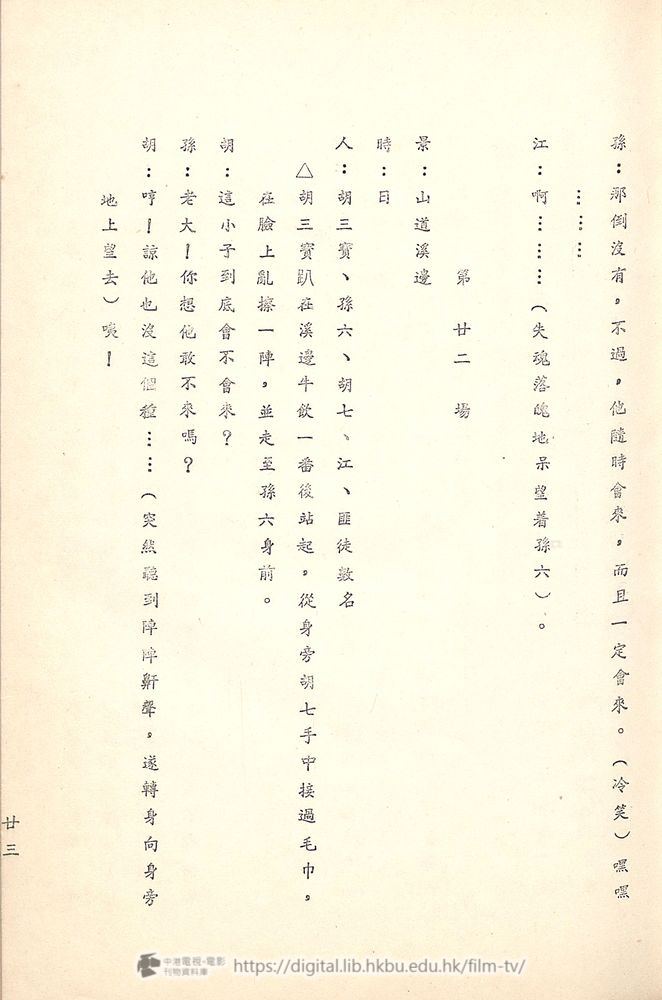 孫：那倒沒有，不過，他隨時會來，而且一定會來。（冷笑）嘿嘿
………
江：啊………（失魂落魄地呆望着孫六）。
第廿二場
景：山道溪邊
時：日
人：胡三寶、孫六、胡七、江、匪徒數名
△胡三寶趴在溪邊牛飲一番後站起，從身旁胡七手中接過毛巾，
在臉上亂擦一陣，並走至孫六身前。
胡：這小子到底會不會來？
孫：老大！你想他敢不來嗎？
胡：哼！諒他也沒這個種……（突然聽到陣陣鼾聲，遂轉身向身旁
地上望去）咦！
廿三
中港電視·電影
刊物資料庫
https://digital.lib.hkbu.edu.hk/film-tv/